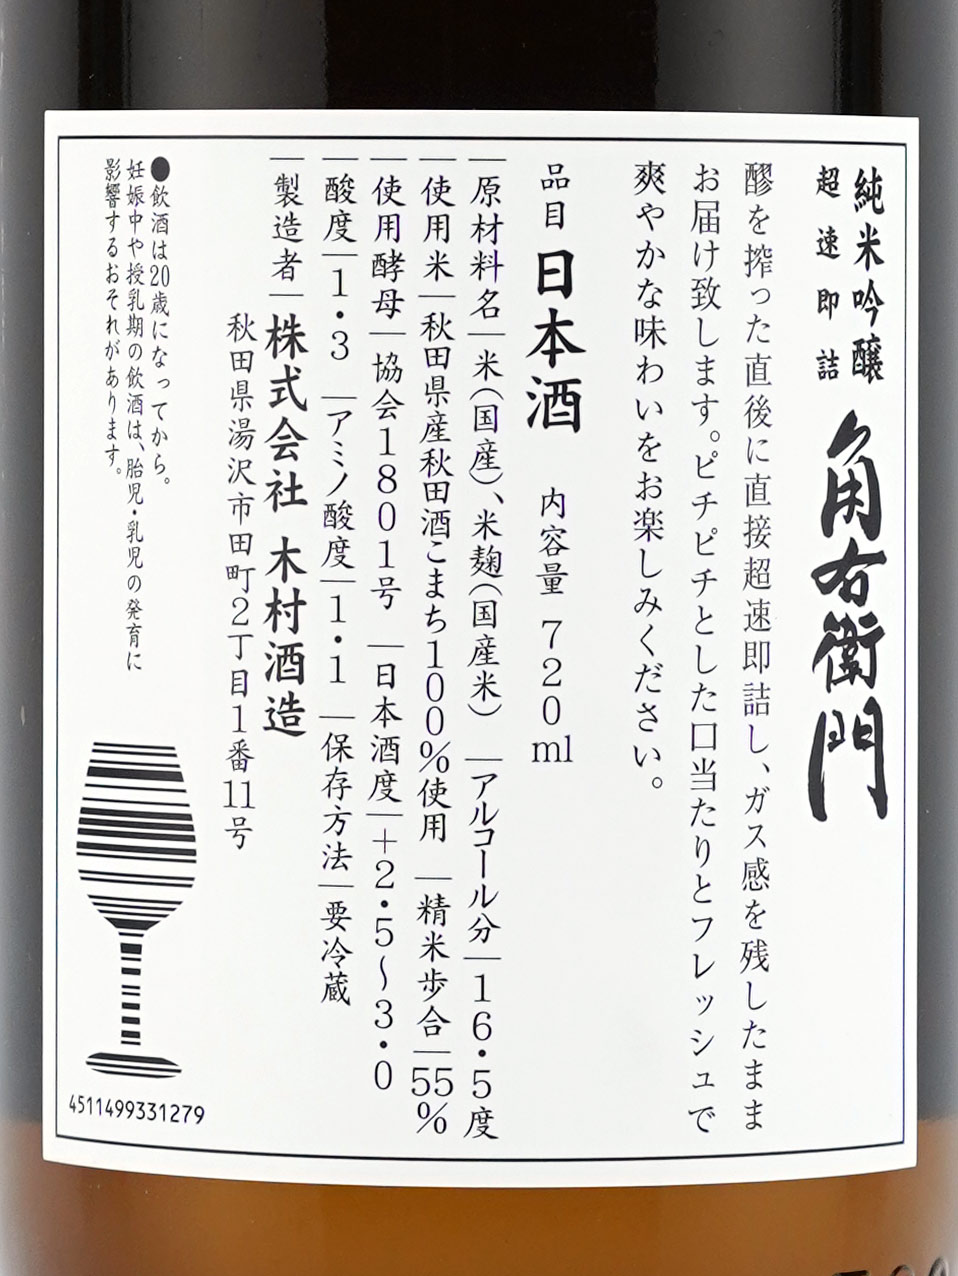 純米吟醸
超速即詰
角右衛門
醪を搾った直後に直接超速即詰し、ガス感を残したまま
お届け致します。ピチピチとした口当たりとフレッシュで
爽やかな味わいをお楽しみください。
品目 日本酒 内容量 720ml
原材料名|米(国産)、米麹(国産米) |アルコール分|16・5度
使用米|秋田県産秋田酒こまち100%使用 |精米歩合|55%
使用酵母|協会1801号 |日本酒度|+2・5〜3・0
酸度|1・3 |アミノ酸度|1・1 |保存方法|要冷蔵
製造者|株式会社 木村酒造
秋田県湯沢市田町2丁目1番11号
●飲酒は20歳になってから。
妊娠中や授乳期の飲酒は、胎児・乳児の発育に
影響するおそれがあります。
4511499331279